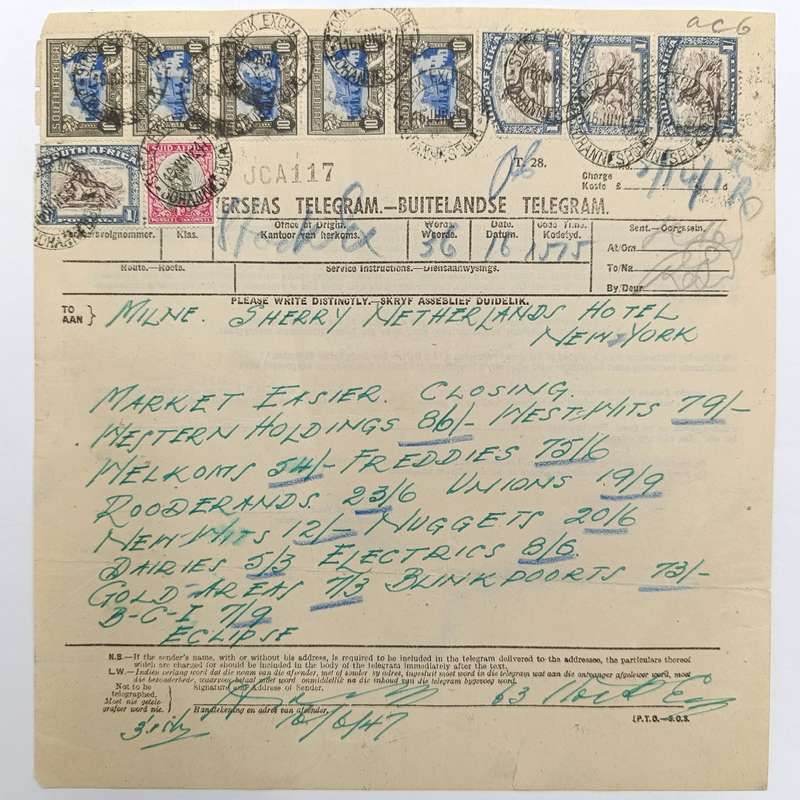 ac6
STOCK EXCHANGE
SOUTH AFRICA
JCA117
T. 28.
No.
Charge
Koste £
OVERSEAS TELEGRAM.—BUITELANDSE TELEGRAM.
Klas.
Office of Origin.
Kantoor van herkoms.
Words
Woorde.
Date.
Datum.
Code Time.
Kodetyd.
Sent.—Oorgesein.
36
16
1515
At/Om
To/Na
By/Deur
Route.—Roete.
Service Instructions.—Diensaanwysings.
PLEASE WRITE DISTINCTLY.—SKRYF ASSEBLIEF DUIDELIK.
TO
AAN
MILNE. SHERRY NETHERLANDS HOTEL
NEW YORK
MARKET EASIER. CLOSING.
WESTERN HOLDINGS 86/- WEST.WITS 79/-
WELKOMS 54/- FREDDIES 75/6
ROODERANDS. 23/6 UNIONS 19/9
NEW WITS 12/- NUGGETS 20/6
DAIRIES 5/3 ELECTRICS 8/6
GOLD AREAS 7/3 BLINKPOORTS 73/-
B-C-I 7/9
ECLIPSE
N.B.—If the sender's name, with or without his address, is required to be included in the telegram delivered to the addressee, the particulars thereof
which are charged for should be included in the body of the telegram immediately after the text.
L.W.—Indien verlang word dat die naam van die afsender, met of sonder sy adres, ingesluit moet word in die telegram wat aan die ontvanger afgelewer word, moet
die besonderhede, waarvoor betaal moet word onmiddellik na die inhoud van die telegram bygevoeg word.
Not to be
telegraphed.
Moet nie getele-
grafeer word nie.
Signature and Address of Sender.
63
Handtekening en adres van afsender.
16/6/47
(P.T.O.—S.O.S.